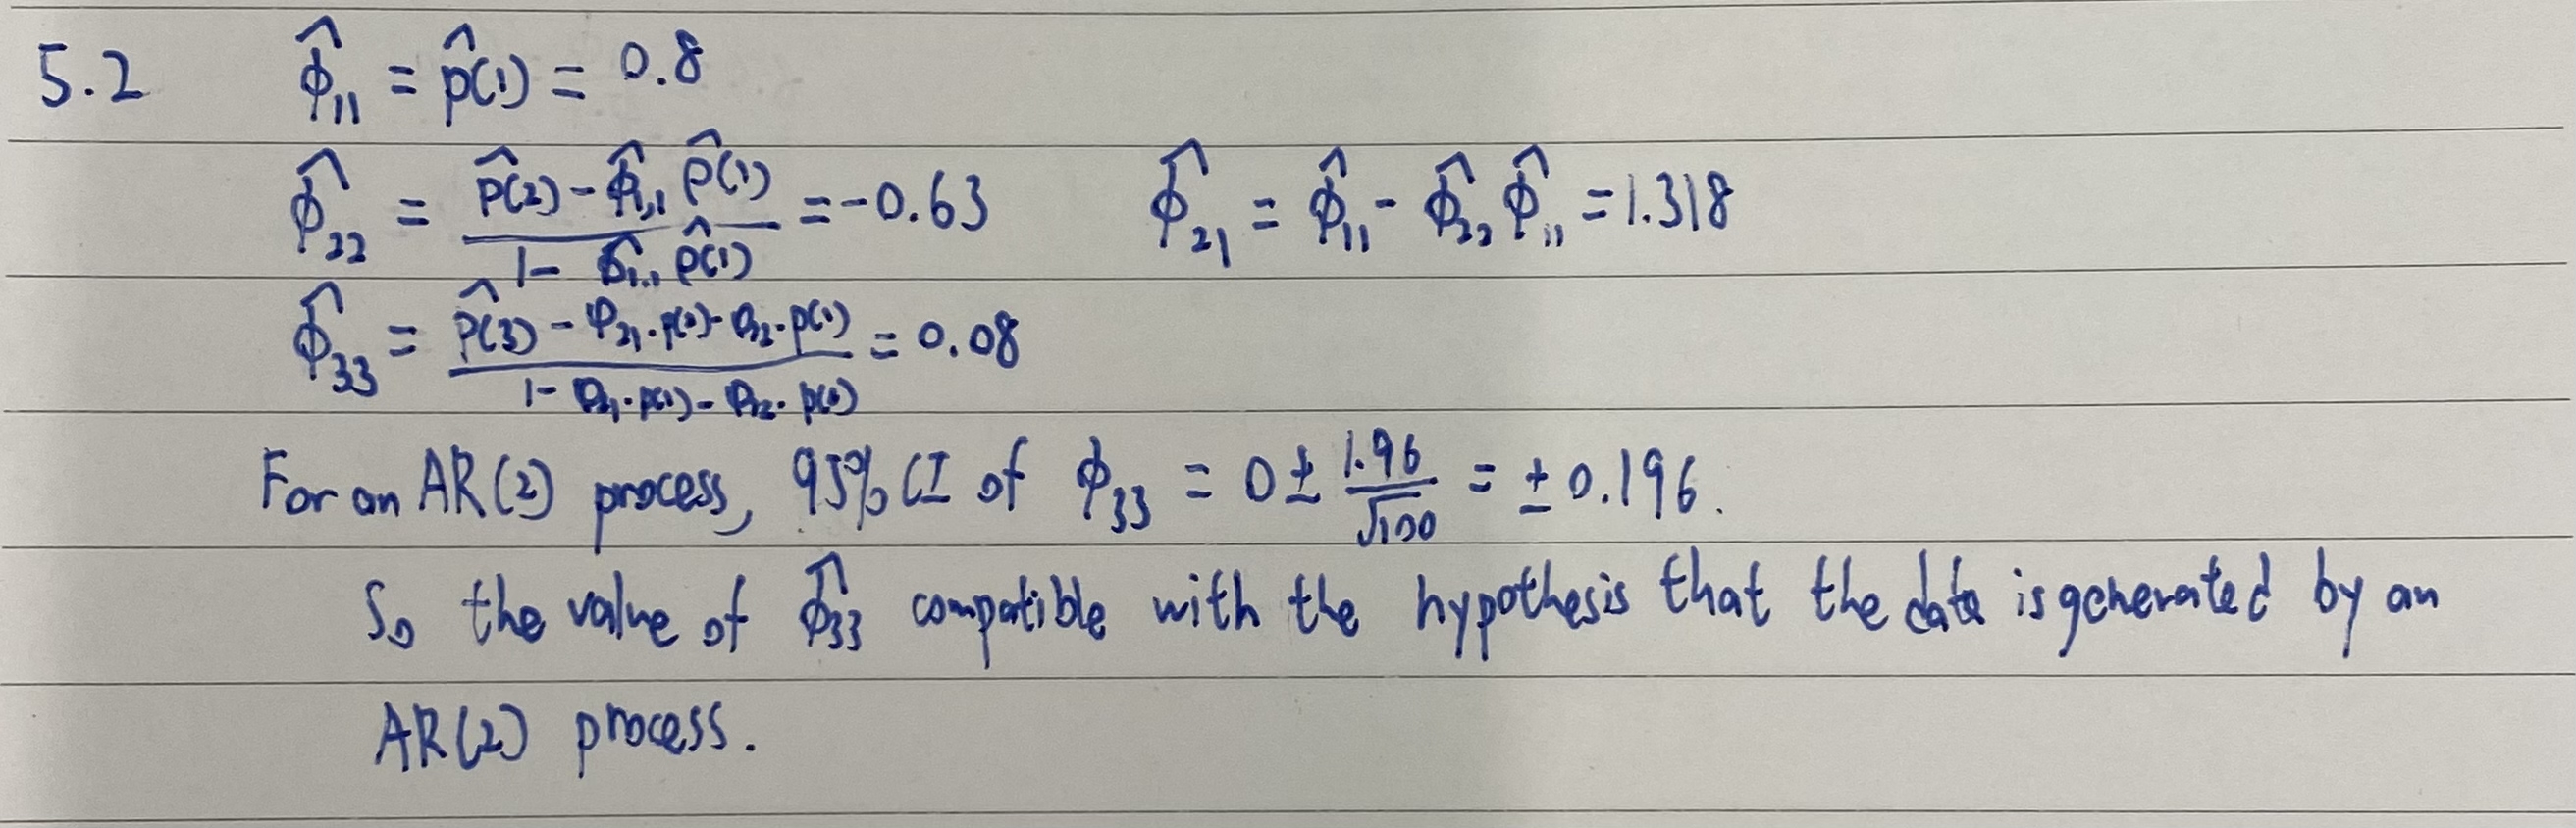 5.2 ϕ̂₁₁ = ρ̂(1) = 0.8
ϕ̂₂₂ = (ρ̂(2) - ϕ̂₁₁ ρ̂(1)) / (1 - ϕ̂₁₁ ρ̂(1)) = -0.63 ϕ̂₂₁ = ϕ̂₁₁ - ϕ̂₂₂ ϕ̂₁₁ = 1.318
ϕ̂₃₃ = (ρ̂(3) - ϕ₂₁·ρ(2) - ϕ₂₂·ρ(1)) / (1 - ϕ₂₁·ρ(1) - ϕ₂₂·ρ(2)) = 0.08
For an AR(2) process, 95% CI of ϕ₃₃ = 0 ± 1.96/√100 = ± 0.196.
So the value of ϕ̂₃₃ compatible with the hypothesis that the data is generated by an
AR(2) process.